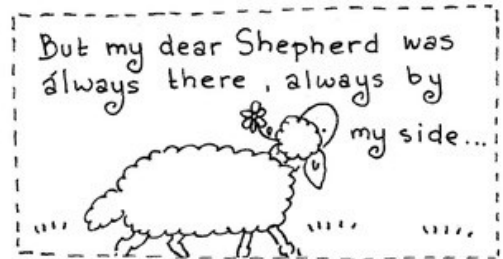 But my dear Shepherd was
always there, always by
my side...